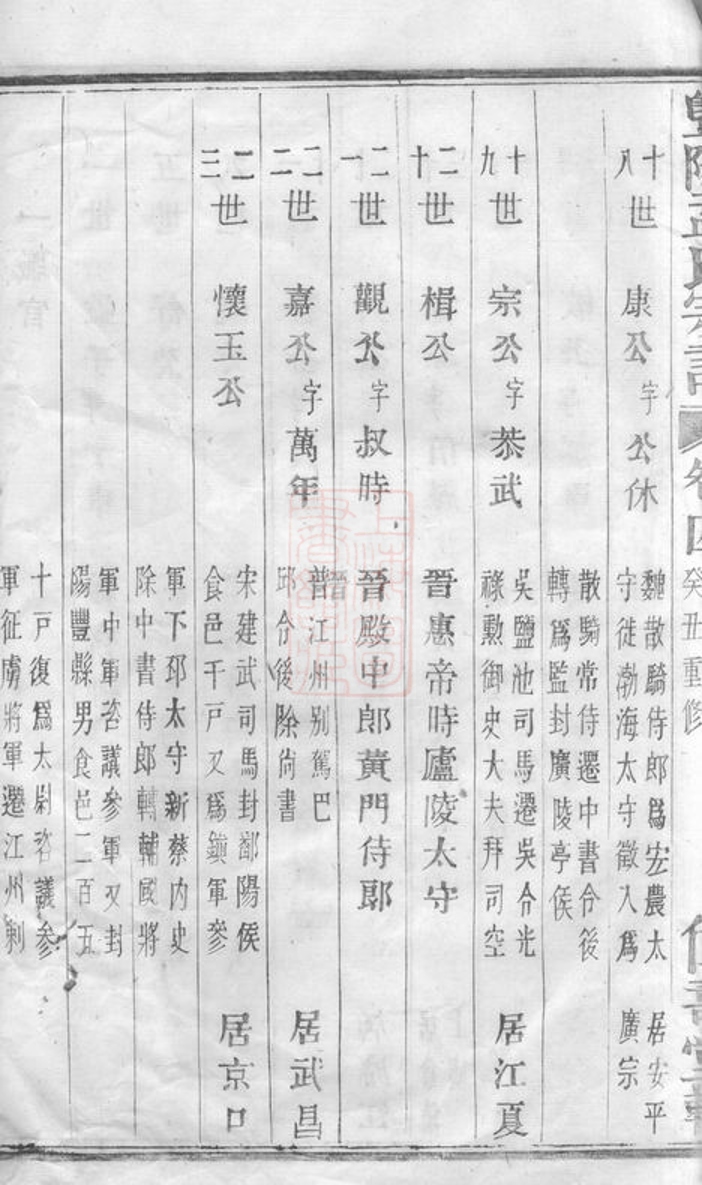 暨陽孟氏宗譜 卷四 癸丑重修
十八世 康公 字公休 魏散騎侍郎為宏農太
守徙渤海太守徵入為
居安平
廣宗
散騎常侍遷中書令後
轉為監封廣陵亭侯
十九世 宗公 字恭武 吳鹽池司馬遷吳令光
祿勳御史大夫拜司空
居江夏
二十世 楫公 晉惠帝時廬陵太守
二一世 觀公 字叔時 晉殿中郎黃門侍郎
二二世 嘉公 字萬年 晉江州別駕巴
邱令後除尚書
居武昌
二三世 懷玉公 宋建武司馬封鄱陽侯
食邑千戸又為鎮軍參
居京口
軍下邳太守新蔡内史
除中書侍郎轉輔國將
軍中軍咨議參軍又封
陽豐縣男食邑二百五
十戸復為太尉咨議參
軍征虜將軍遷江州刺